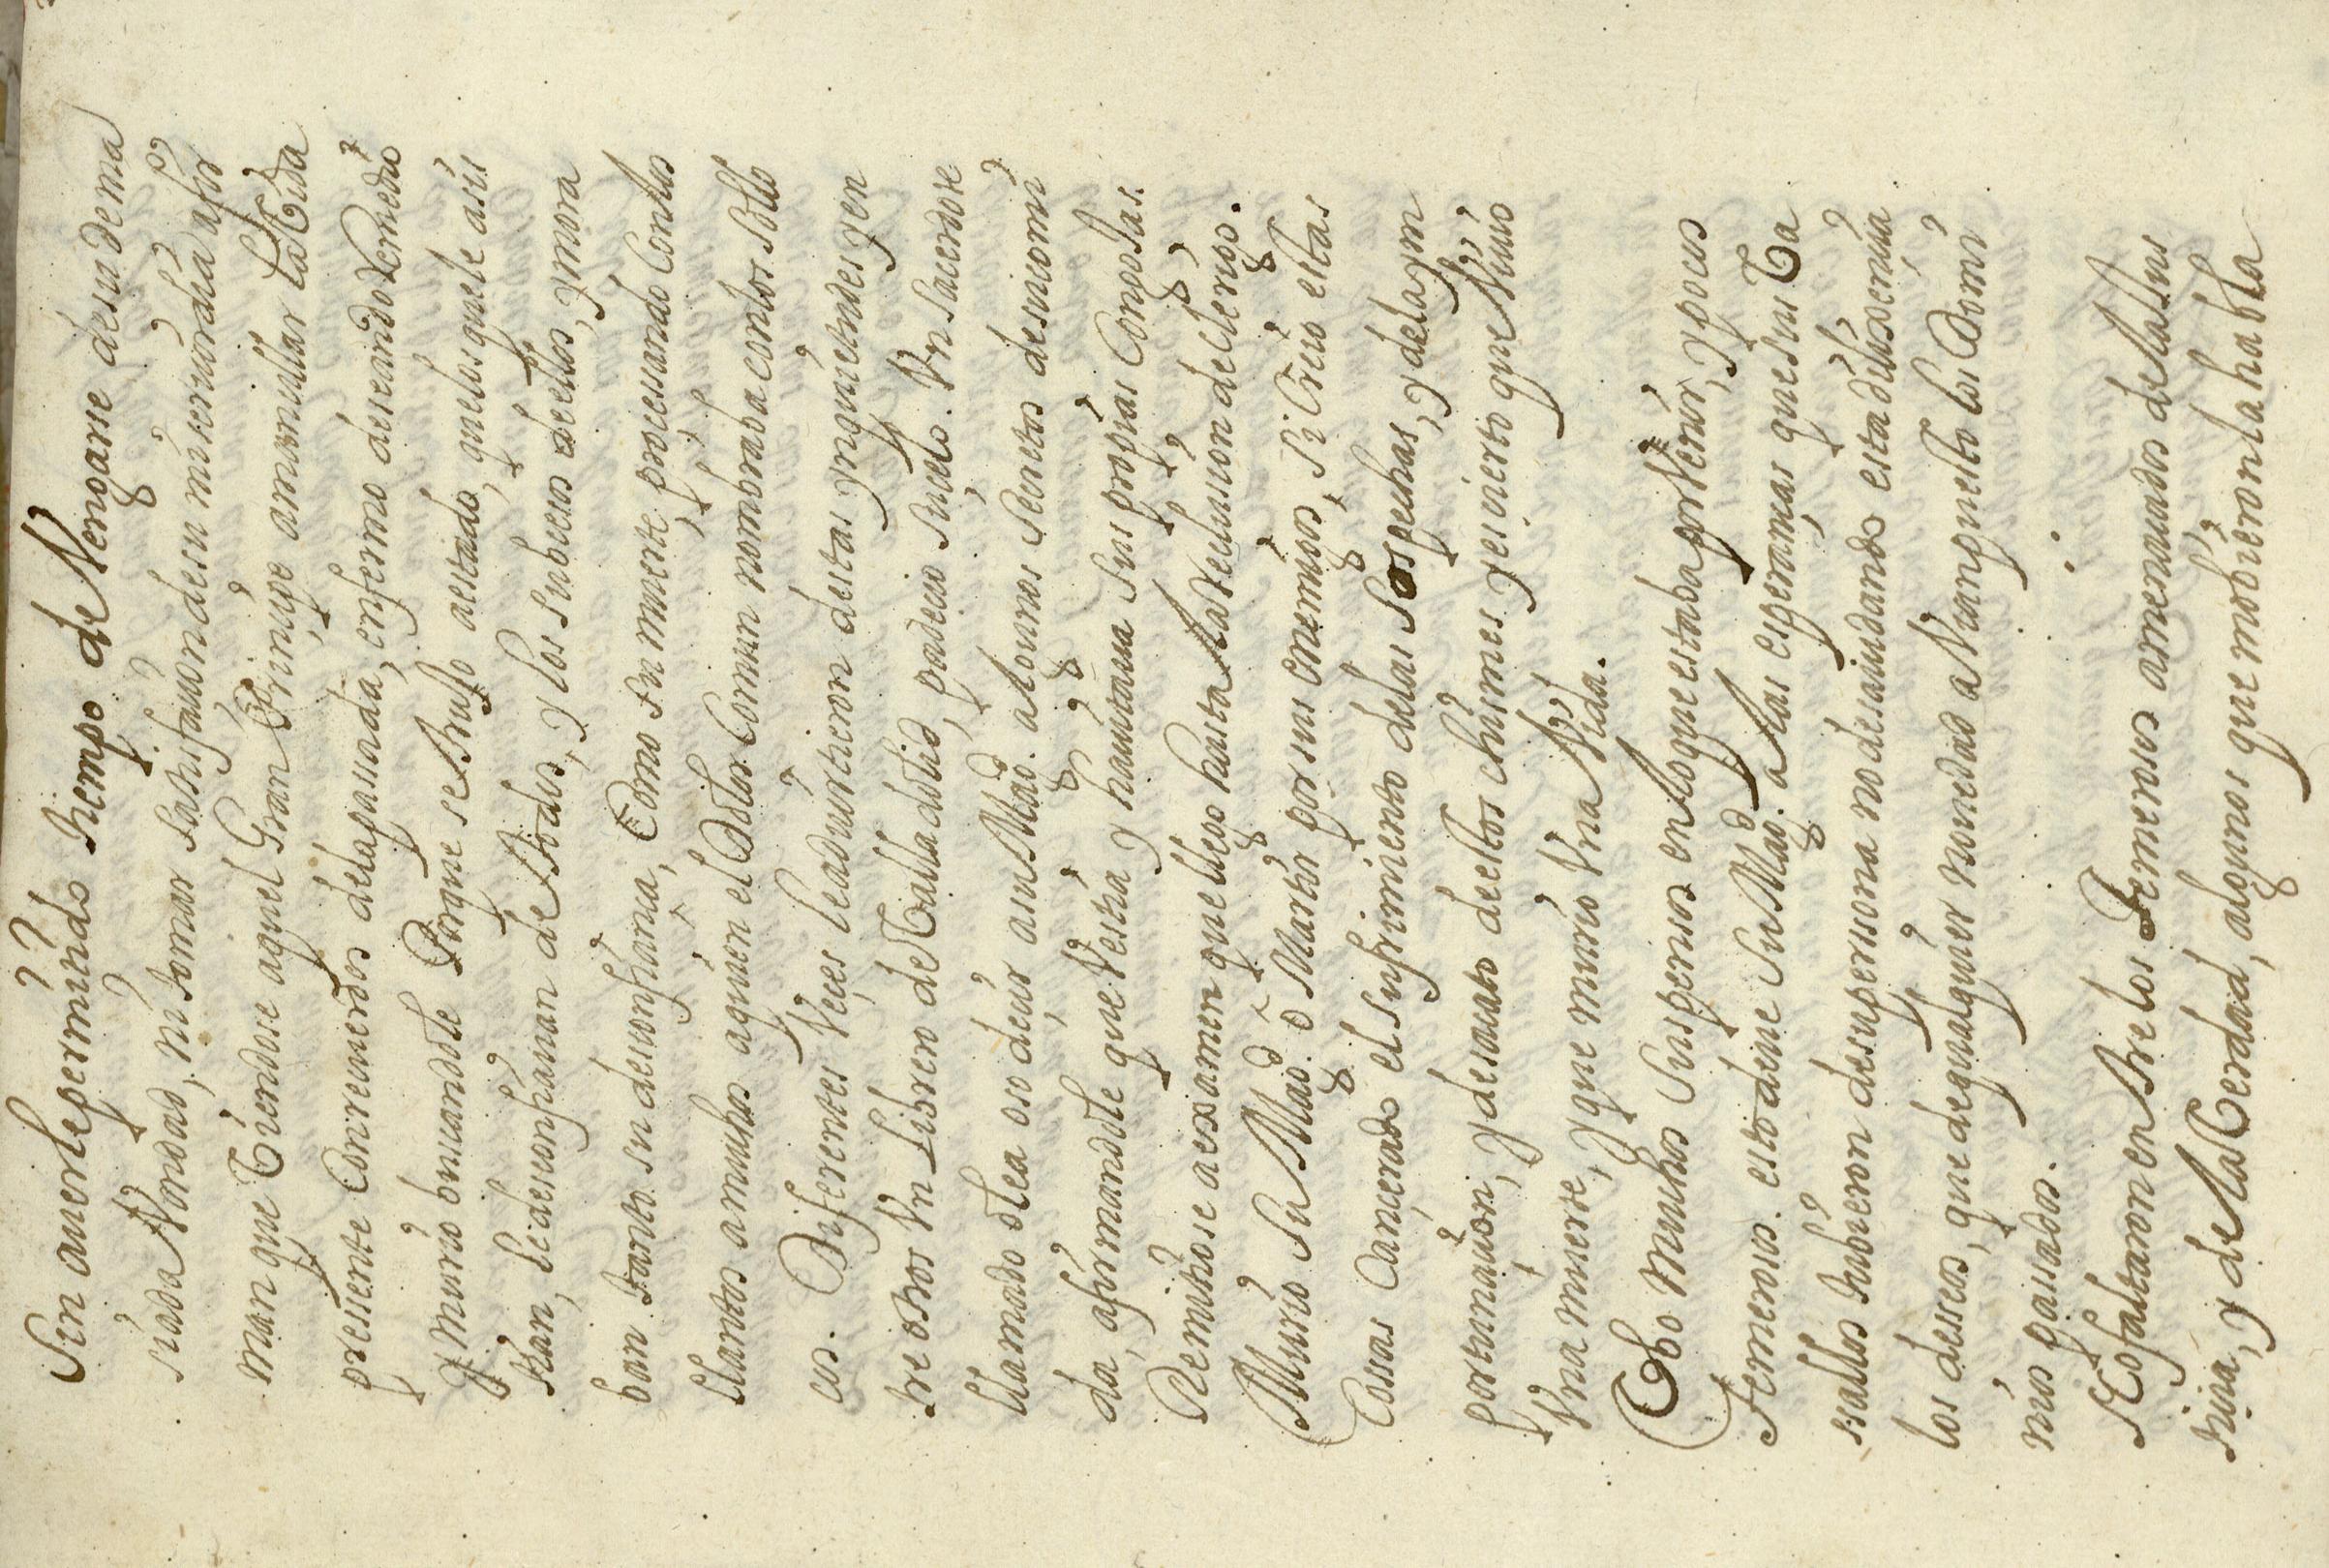 Sin auerle permitido tiempo de Vengarse de su dema
siada Vondad, ni tomar satisfaçion de su misericordia afir
man que Viendose aquel Gran Prinçipe amancillar la Vida
pressente Con remiendos de la passada, enfermo deseando Remedio
y murio buscandole Porque se Truxo a estado, que los que le assis
tian, se desconfiauan de Todos, y los subcesos de ellos, y mora
ban tanto. su desconfianza, Como su muerte, proçessando Con los
llantos a muchos a quien el Dolor Comun nombraba con los sollo
cos. Diferentes Veçes le aduirtieron destas ynquietudes y en
tre otros Vn Librero de Valladolid, padecio Suçeto. Vn Sacerdote
llamado olea oso deçir a su Magd. algunos Secretos de su comi
da, afirmandole que Vestia y hauitaua Sus propias Congojas.
Remitiose a examen que llego hasta la Reclusion del clerigo.
Murio Su Magd. ô Martir por sus enemigos, si Creio estas
Cossas Cançerado el sufrimiento de las Sospechas, y de la ym
portunaçion, y desacato de estos chismes y es çierto que Viuio
Vna muerte, y que murio Vna Vida.
Vbo muchos Suspensos en lo que estaba por Venir, y pocos
Temerosos. esto deue Su Magd. a las esperanças que sus Va
ssallos tubieron de su persona no descuidando esta diligençia
los deseos, que de qualquier nouedad a Vian puesto los Domi
nios passados.
No faltaron entre los Temerosos amenaçados de la Jus
tiçia, y de la Verdad, algunos que mobieron la habla